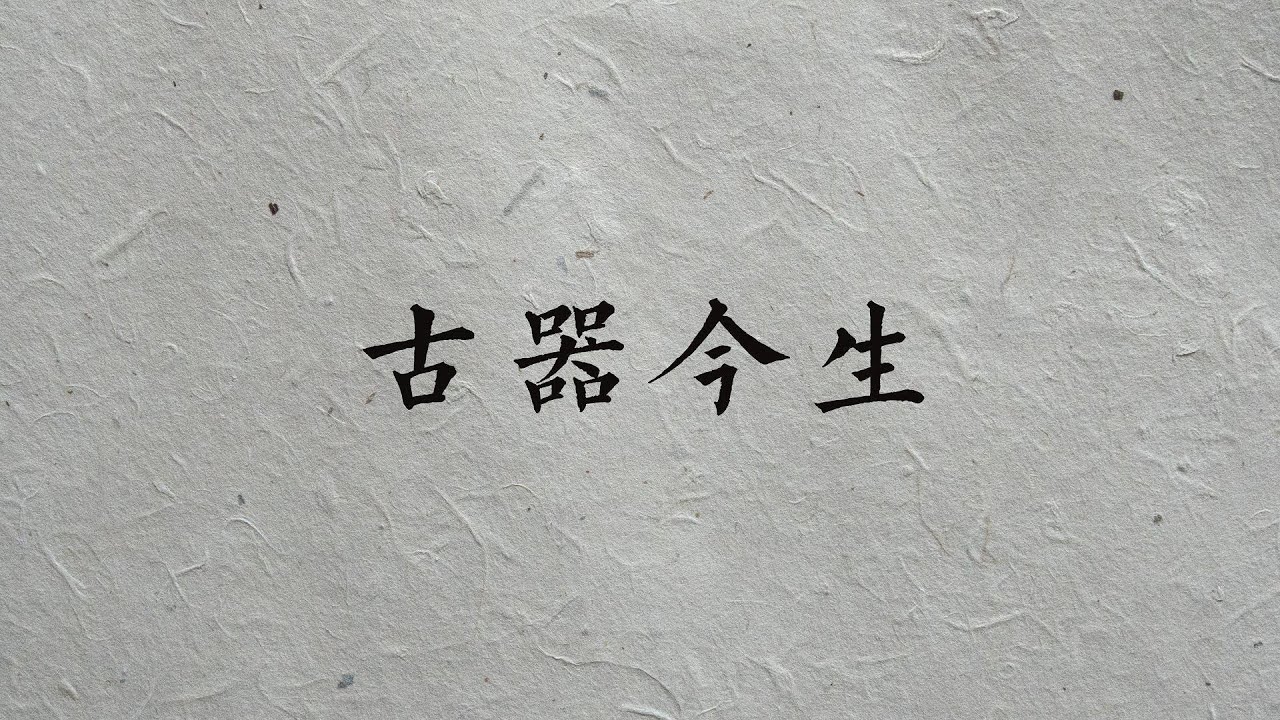 古器今生